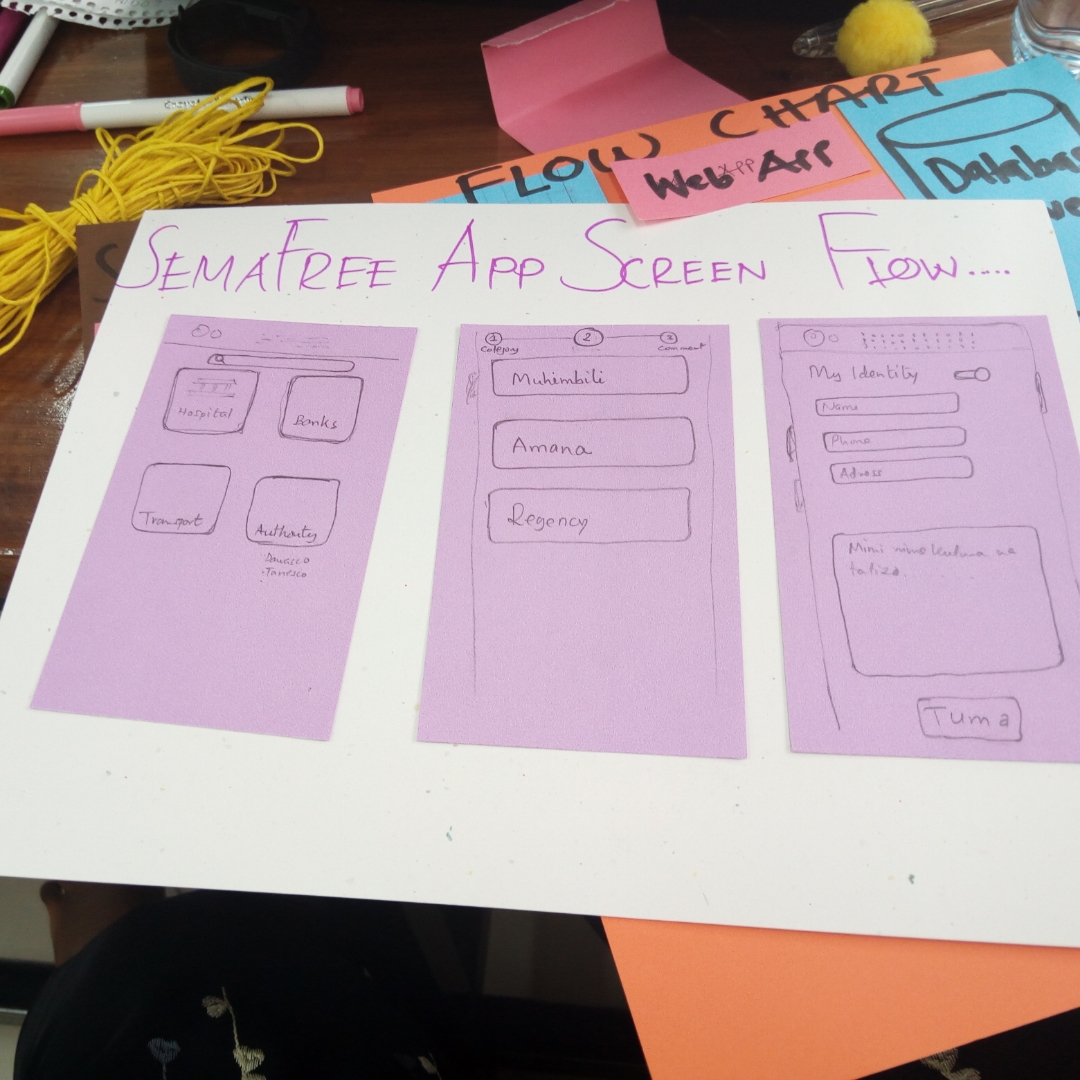 FLOW CHART
Web App
Databas
SEMAFREE APP SCREEN FLOW.....
Hospital
Banks
Transport
Authority
Dawasco
Tanesco
1
2
3
Category
Comment
Muhimbili
Amana
Regency
My Identity
Name
Phone
Adress
Mimi
Tuma